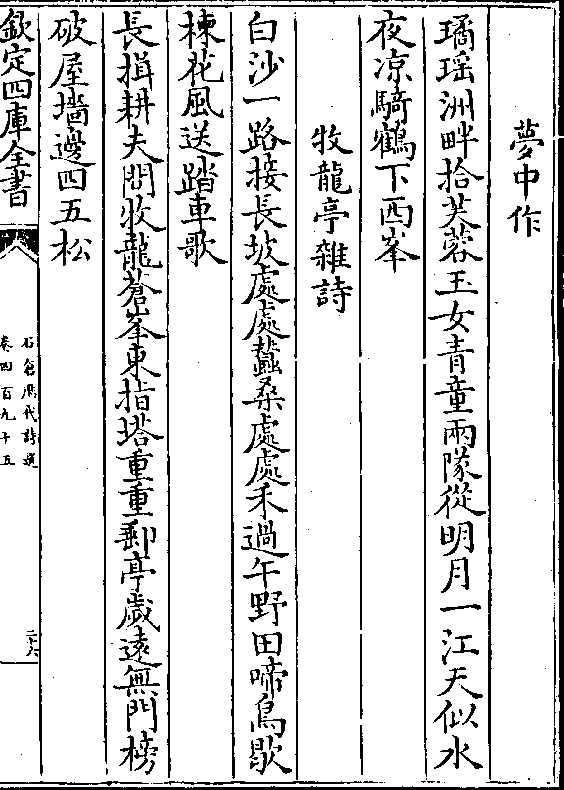 夢中作
璚瑶洲畔拾芙蓉玉女青童兩隊從明月一江天似水
夜凉騎鶴下西峯
牧龍亭雜詩
白沙一路接長坡處處蠶桑處處禾過午野田啼鳥歇
楝花風送踏車歌
長揖耕夫問牧龍蒼峯東指塔重重郵亭歲遠無門榜
破屋墻邊四五松
欽定四庫全書
石倉歷代詩選
卷四百九十五
二十六